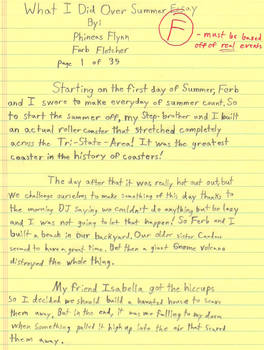 What I Did Over Summer Essay
By:
Phineas Flynn
Ferb Fletcher
page 1 of 35
F
- must be based
off of real events
Starting on the first day of Summer, Ferb
and I swore to make everyday of summer count. So
to start the summer off, my Step-brother and I built
an actual roller coaster that stretched completely
across the Tri-State-Area! It was the greatest
coaster in the history of coasters!
The day after that it was really hot out, but
we challenge ourselves to make something of this day thanks to
the morning DJ saying we couldn't do anything but be lazy
and I was not going to let that happen! So Ferb and I
built a beach in our backyard. Our older sister Candace
seemed to have a great time. But then a giant Gnome Volcano
distroyed the whole thing.
My friend Isabella got the hiccups
So I decided we should build a haunted house to scare
them away. But in the end, it was me falling to my doom
when something pulled it high up into the air that scared
them away.